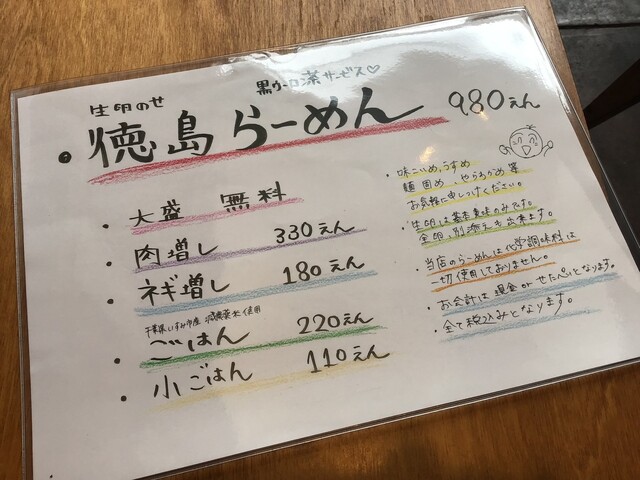 生卵のせ
黒ウーロン茶サービス♡
・徳島らーめん 980えん
・大盛 無料
・肉増し 330えん
・ネギ増し 180えん
千葉県いすみ市産 減農薬米使用
・ごはん 220えん
・小ごはん 110えん
・味こいめ、うすめ
麺固め、やわらかめ等
お気軽に申しつけください。
・生卵は黄身のみです。
全卵、別添えも出来ます。
・当店のらーめんは化学調味料は
一切使用しておりません。
・お会計は現金orせたペイとなります。
・全て税込みとなります。